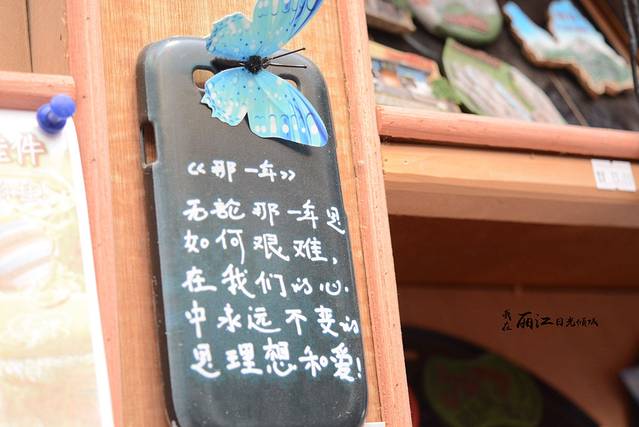 《那一年》
无论那一年是
如何艰难,
在我们的心
中永远不变的
是理想和爱!
我在丽江日光倾城